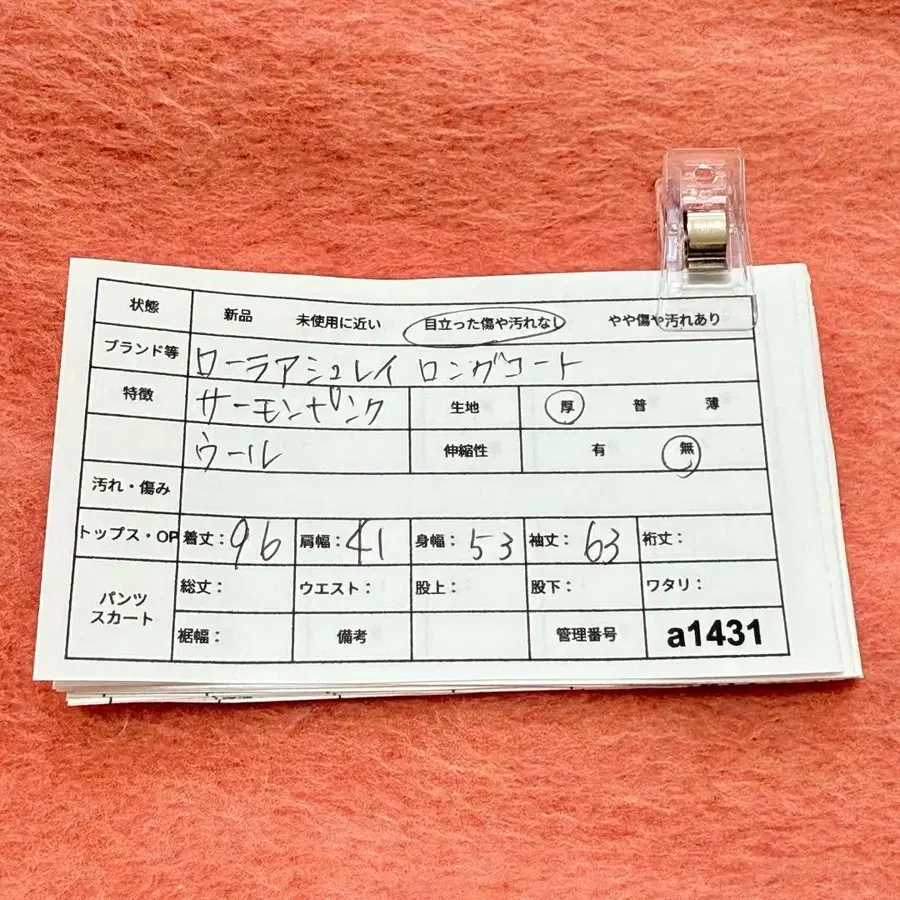 状態 新品 未使用に近い 目立った傷や汚れなし やや傷や汚れあり
ブランド等 ローラアシュレイ ロングコート
特徴 サーモンピンク 生地 厚 普 薄
ウール 伸縮性 有 無
汚れ・傷み
トップス・OP 着丈：96 肩幅：41 身幅：53 袖丈：63 裄丈：
パンツ スカート 総丈： ウエスト： 股上： 股下： ワタリ：
裾幅： 備考 管理番号 a1431